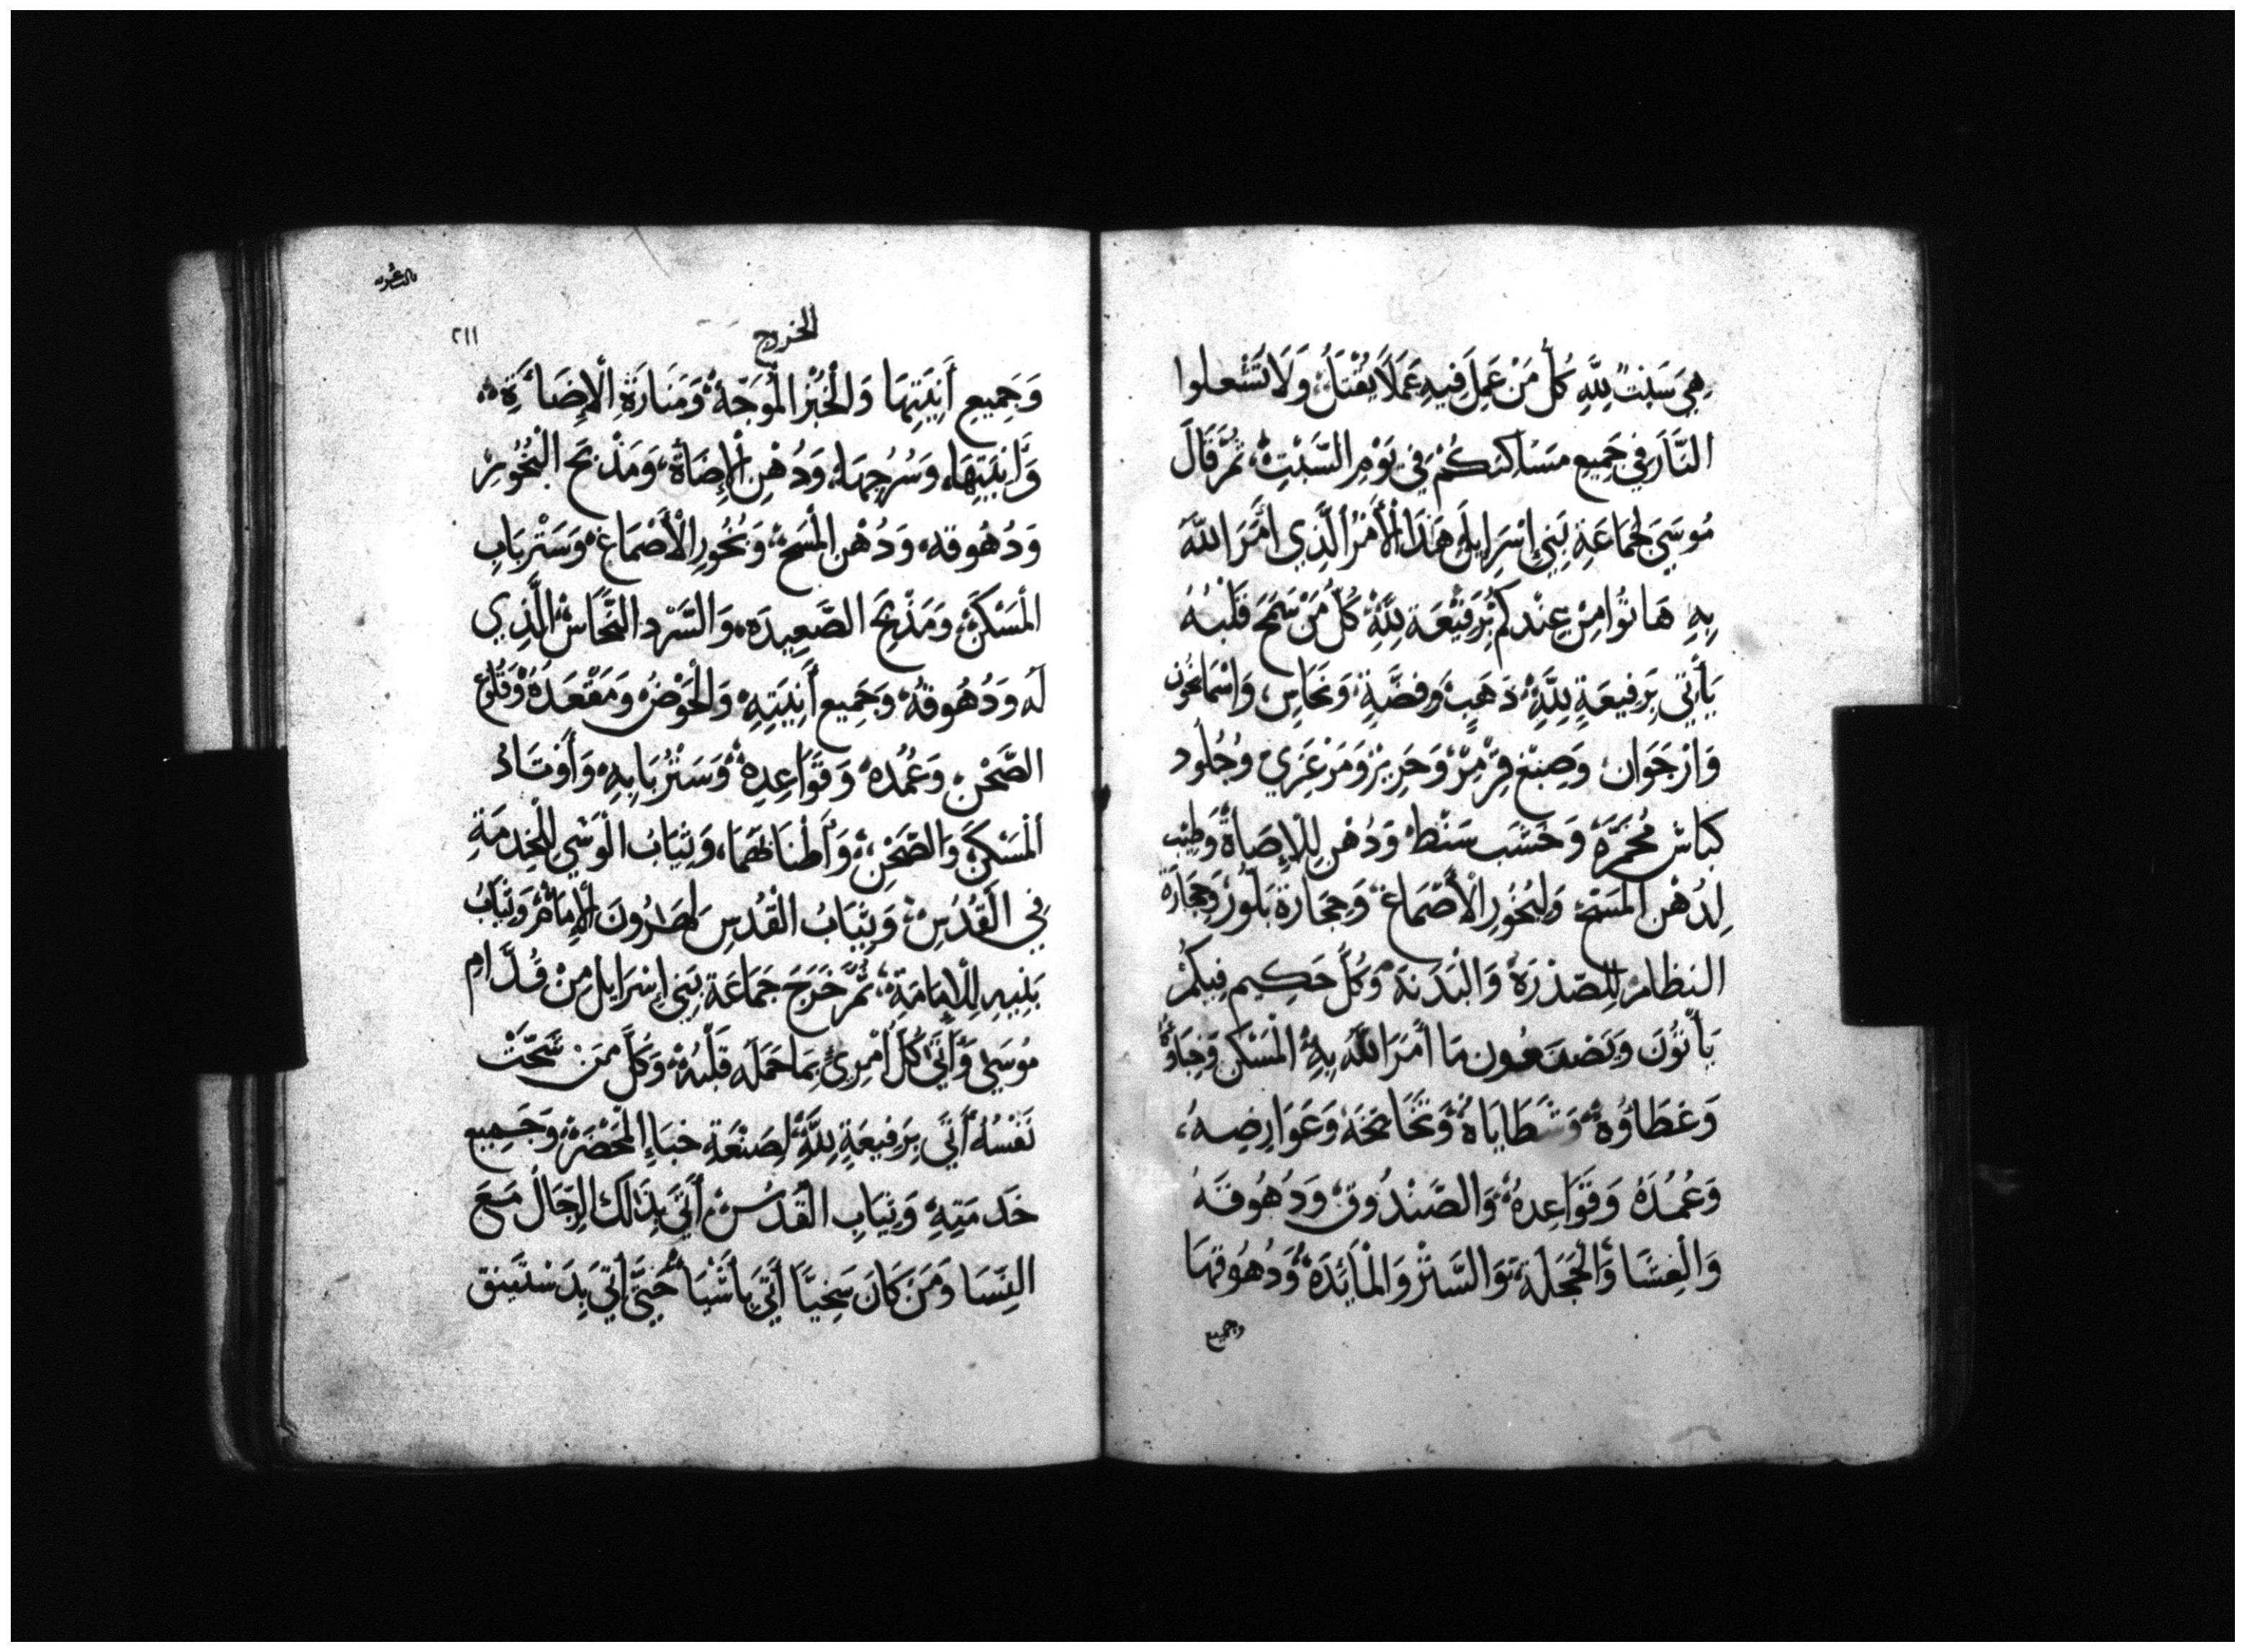 هِيَ سَبْتٌ لِلَّهِ كُلُّ مَنْ عَمِلَ فِيهِ عَمَلًا يُقْتَلُ وَلَا تَشْعلوا
النَّارَ فِي جَمِيعِ مَسَاكِنِكُمْ فِي يَوْمِ السَّبْتِ ثُمَّ قَالَ
مُوسَى لِجَمَاعَةِ بَنِي إِسْرَايِلَ هَذَا الْأَمْرُ الَّذِي أَمَرَ اللَّهُ
بِهِ هَاتُوا مِنْ عِنْدِكُمْ رَفِيْعَة لِلَّهِ كُلُّ مَنْ سَمَحَ قَلْبُهُ
يَأْتِي بِرَفِيعَةٍ لِلَّهِ ذَهَبٍ وَفِضَّةٍ وَنُحَاسٍ وَاسْمَانْجُونِ
وَارْجَوَان وَصِبْغ قِرْمِزْ وَحَرِيرْ وَمَرْعَزِي وَجُلُود
كِبَاش مُحَمَّرَة وَخَشَب سَنْط وَدُهْنٍ لِلْإِضَاةْ وَطِيْب
لِدُهْنِ الْمَسْحِ وَلِبُخُورِ الْأَصْمَاغ وَحِجَارَة بَلُّورْ وَحِجَارَة
النظَام لِلصّدْرَة وَالْبَدَنَة وَكُلّ حَكِيم فِيكُمْ
يَأْتُونَ وَيَصْنَعُونَ مَا أَمَرَ اللَّه بِهِ الْمَسْكَن وَخِبَاؤُهُ
وَغِطَاؤُهُ وَشَظَايَاهُ وَتَخَاتِجَهُ وَعَوَارِضِهُ
وَعُمُدَهُ وَقَوَاعِدِهُ وَالصَّنْدُوق وَدُهُوقَهُ
وَالْغِشَا وَالْحَجَلَة وَالسَّتْرْ وَالْمَائِدَة وَدُهُوقهَا
وجميع
الخروج
٢١١
وَجَمِيعِ أَنِيَتِهَا وَالْخُبْزِ الْمُوَجَّهْ وَمَنَارَةِ الْإِضَاءَةِ
وَآنِيَتِهَا وَسُرُجِهَا وَدُهْنِ الْإِضَاةْ وَمَذْبَح الْبُخُورِ
وَدُهُوقه وَدُهْنِ الْمَسْحِ وَبُخُورِ الْأَصْمَاغ وَسَتْرِ بَابِ
الْمَسْكَن وَمَذْبَحَ الصَّعِيدَه وَالسَّرْد النُّحَاس الَّذِي
لَهُ وَدُهُوقهُ وَجَمِيع أَنِيَتِهِ وَالْحَوْضُ وَمَقْعَدهُ وَقُلُوعِ
الصَّحْنِ وَعُمُدهُ وَقَوَاعِدِهْ وَسَتْرُ بَابِهِ وَأَوْتَادُ
الْمَسْكَنِ وَالصَّحْنِ وَأَطْنَابَهُمَا وَثِيَابُ الْوَشْيِ لِلْخِدْمَةِ
فِي الْقُدْسِ وَثِيَابُ الْقُدْسِ لِهَارُونَ الْإِمَامْ وَثِيَابُ
بَنِيهِ لِلْإِمَامَةِ ثُمَّ خَرَجَ جَمَاعَة بَنِي إِسْرَايل مِنْ قُدَّامِ
مُوسَى وَأَتَى كُلّ أَمْرِئٍ بِمَا حَمَلَه قَلْبُهُ وَكُلّ مَنْ سَخَتْ
نَفْسُهُ أَتَى بِرَفِيعَةٍ لِلَّهِ لِصَنْعَةِ خبَاءِ الْمَحْضَرْ وَجَمِيع
خَدمَتِهِ وَثِيَابِ الْقُدْسْ أَتَى بِذَلكَ الرِّجَالُ مَعَ
النِّسَا وَمَنْ كَانَ سَخِيًّا أَتَى بِأَشْيَا حَتَّى أتى بِدَسْتَينق